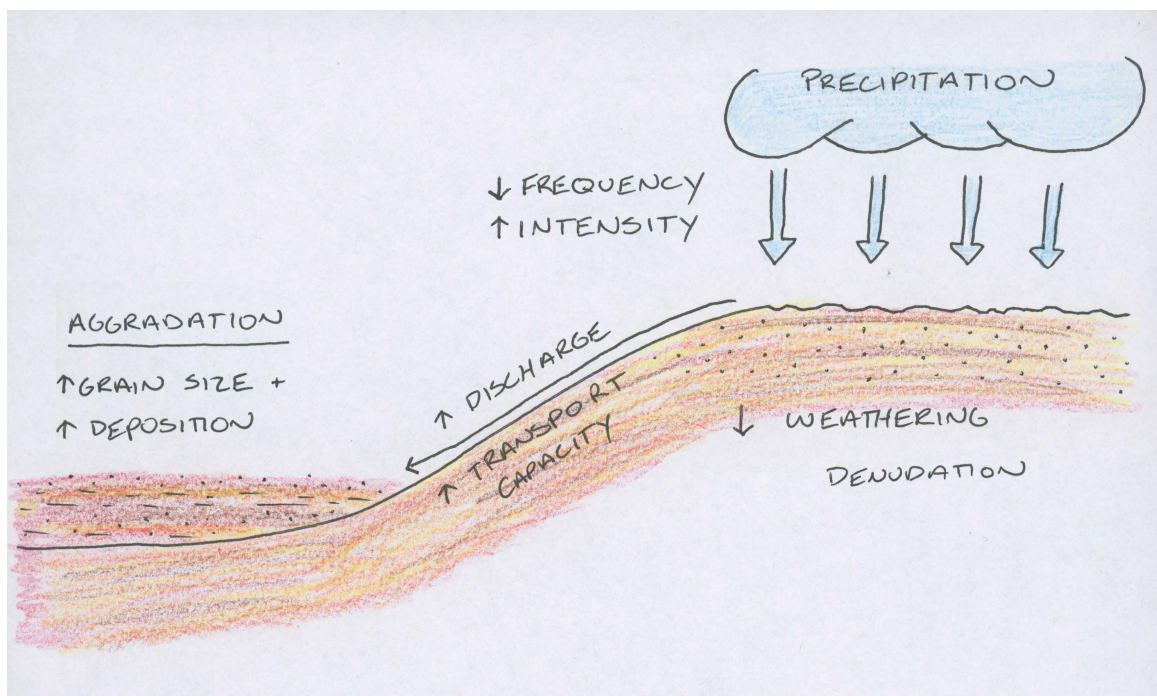 PRECIPITATION
↓ FREQUENCY
↑ INTENSITY
AGGRADATION
↑ GRAIN SIZE +
↑ DEPOSITION
↑ DISCHARGE
↑ TRANSPORT
CAPACITY
↓ WEATHERING
DENUDATION